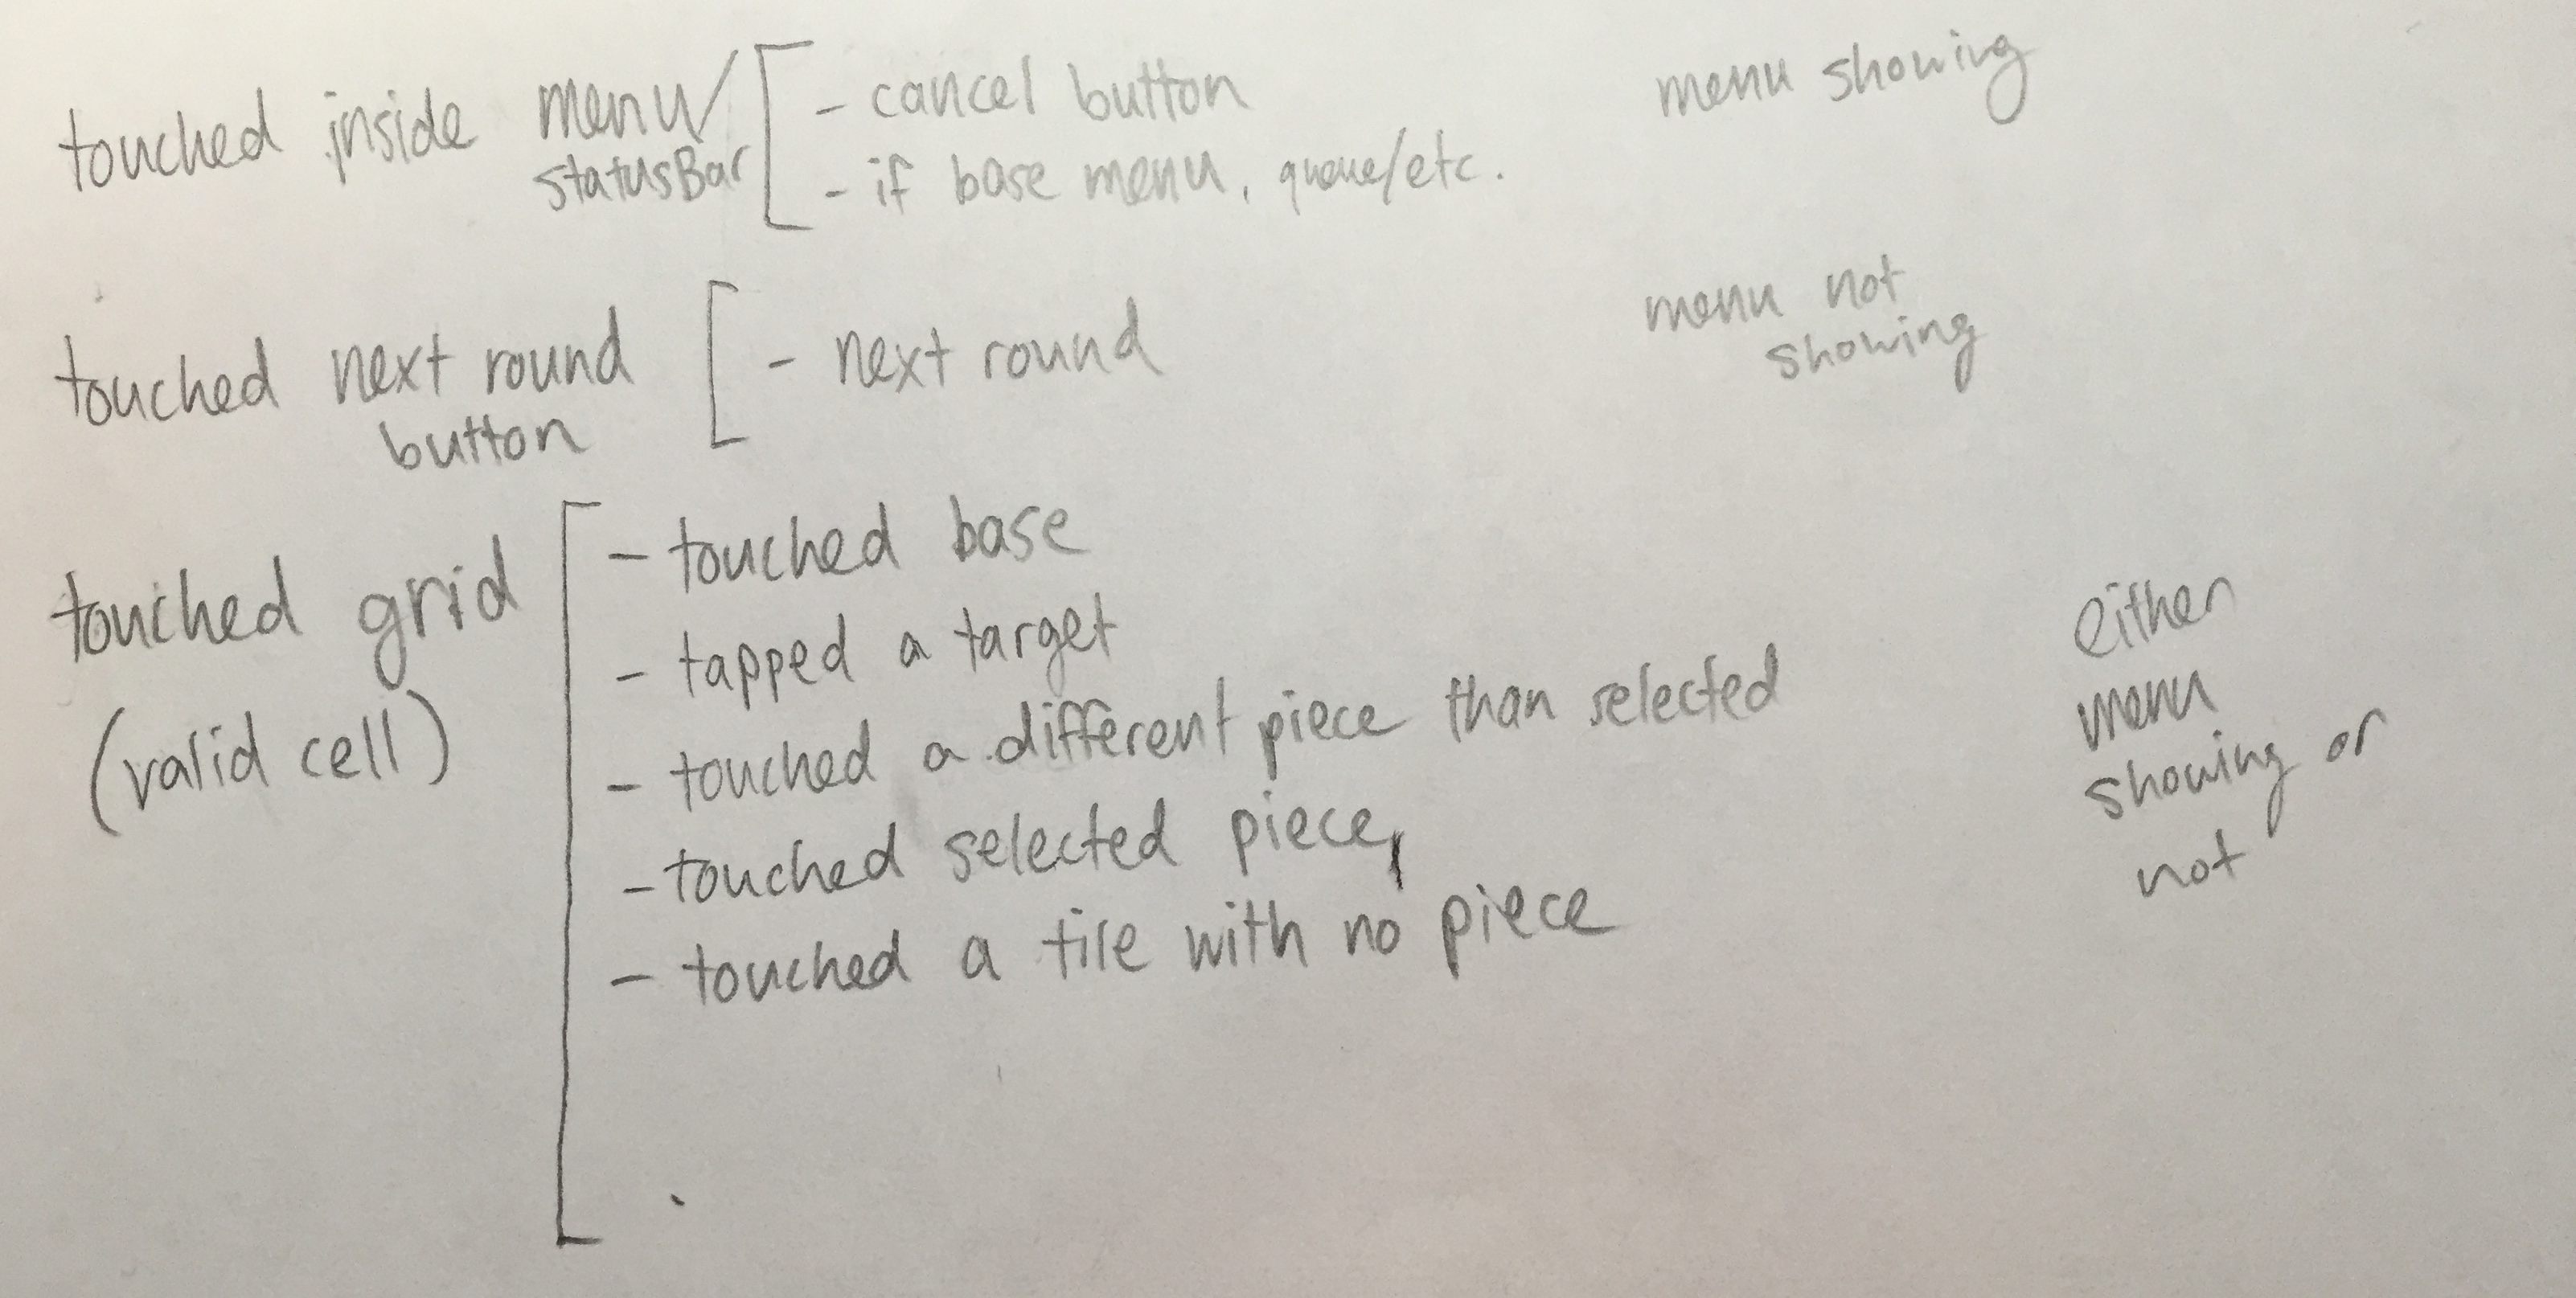 touched inside menu/ statusBar
- cancel button
- if base menu, queue/etc.
menu showing
touched next round
button
- next round
menu not
showing
touched grid
(valid cell)
- touched base
- tapped a target
- touched a different piece than selected
- touched selected piece,
- touched a tile with no piece
either
menu
showing or
not